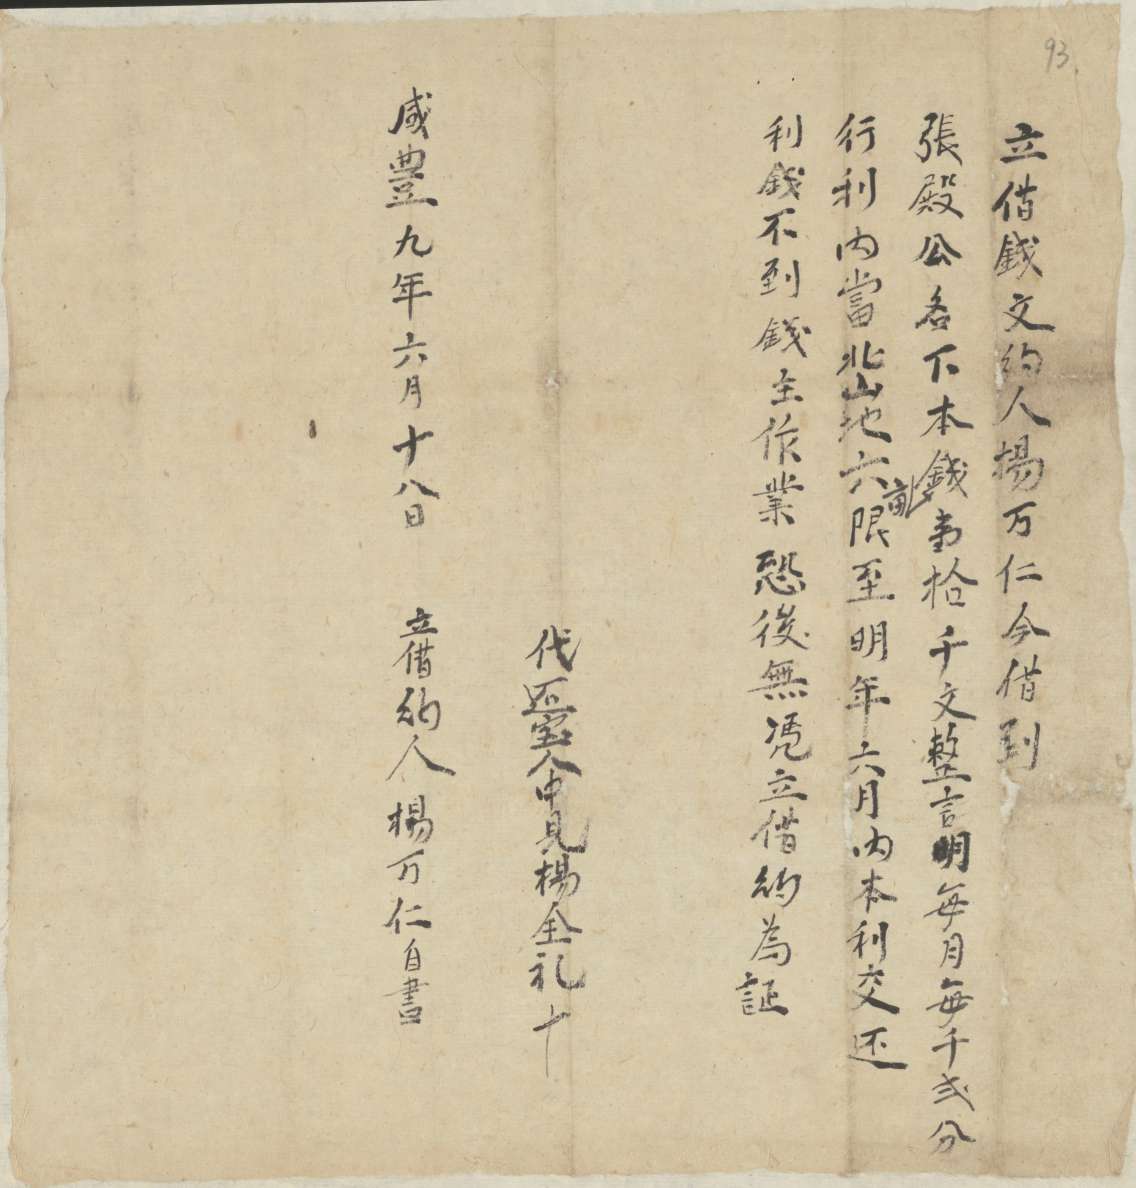 93
立借錢文約人楊万仁今借到
張殿公名下本錢壹拾千文整言明每月每千弍分
行利內當北山地六畝限至明年六月內本利交还
利錢不到錢主作業恐後無凴立借約為証
代还人中見楊全礼十
咸豊九年六月十八日 立借約人楊万仁自書